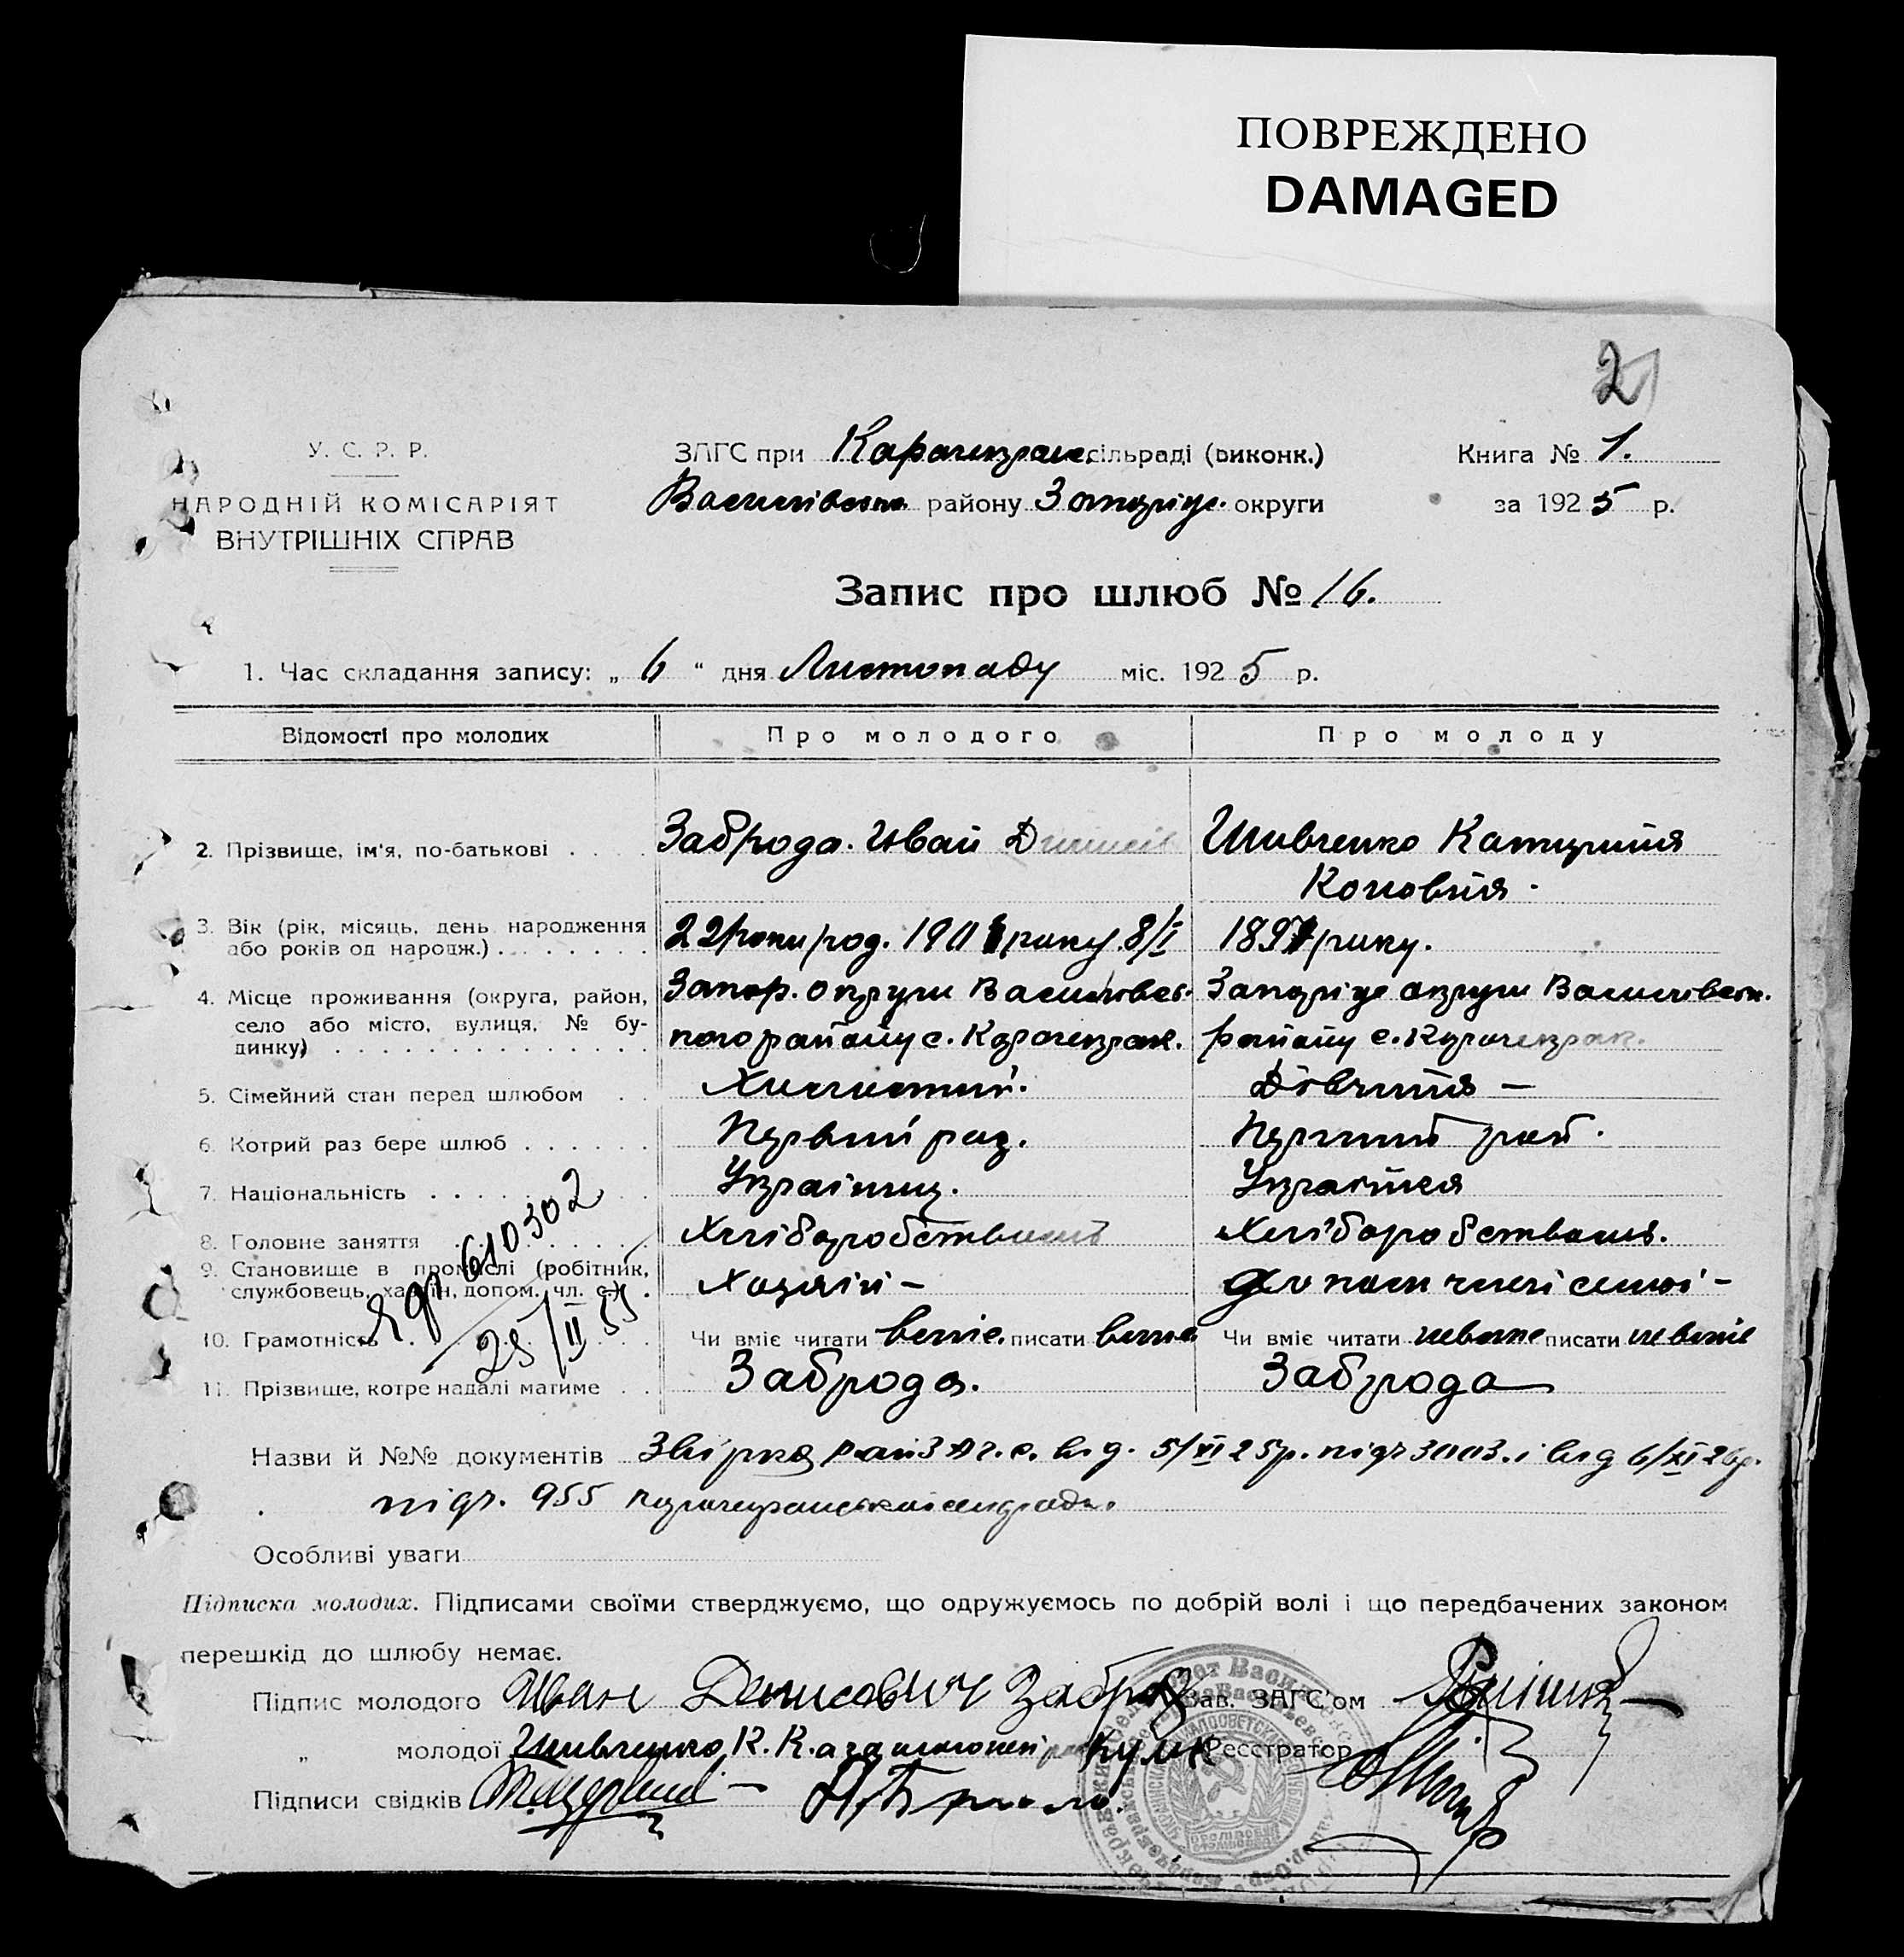 ПОВРЕЖДЕНО
DAMAGED
2
У. С. Р. Р.
НАРОДНІЙ КОМІСАРІЯТ
ВНУТРІШНІХ СПРАВ
ЗАГС при Карачекрак. сільраді (виконк.)
Василівськ. району Запоріж. округи
Книга № 1.
за 1925 р.
Запис про шлюб № 16.
1. Час складання запису: „ 6 “ дня Листопаду міс. 1925 р.
Відомості про молодих Про молодого Про молоду
2. Прізвище, ім'я, по-батькові . . . . Заброда. Иван
Катерина
3. Вік (рік, місяць, день народження
або років од народж.) . . . . . . . род. 190 року 8/I 1897 року.
4. Місце проживання (округа, район,
село або місто, вулиця, № бу-
динку) . . . . . . . . . . . . . .
Запор. округи Василівсь-
кого району с. Карачекрак.
Запоріж округи Василівськ.
району с. Карачекрак.
5. Сімейний стан перед шлюбом . . Холостий. Дівчина –
6. Котрий раз бере шлюб . . . . . . Первий раз. Перший раз.
7. Національність . . . . . . . . . . Українец. Українка
8. Головне заняття . . . . . . . . . Хліборобством Хліборобством.
9. Становище в промислі (робітник,
службовець, хазяїн, допом. чл. с.) . Хозяїн – допом члені семї –
10. Грамотність . . . . . . . . Чи вміє читати вміє. писати вміє Чи вміє читати невміє писати невміє
11. Прізвище, котре надалі матиме . . Заброда. Заброда
610302
25/II 55
Назви й №№ документів від 5/XI 25р. від 6/XI
955 Карачекранської сельради.
Особливі уваги
Підписка молодих. Підписами своїми стверджуємо, що одружуємось по добрій волі і що передбачених законом
перешкід до шлюбу немає.
Підпис молодого Иван Денисович Заброд Зав. ЗАГС'ом
„ молодої К. К. Реєстратор
Підписи свідків